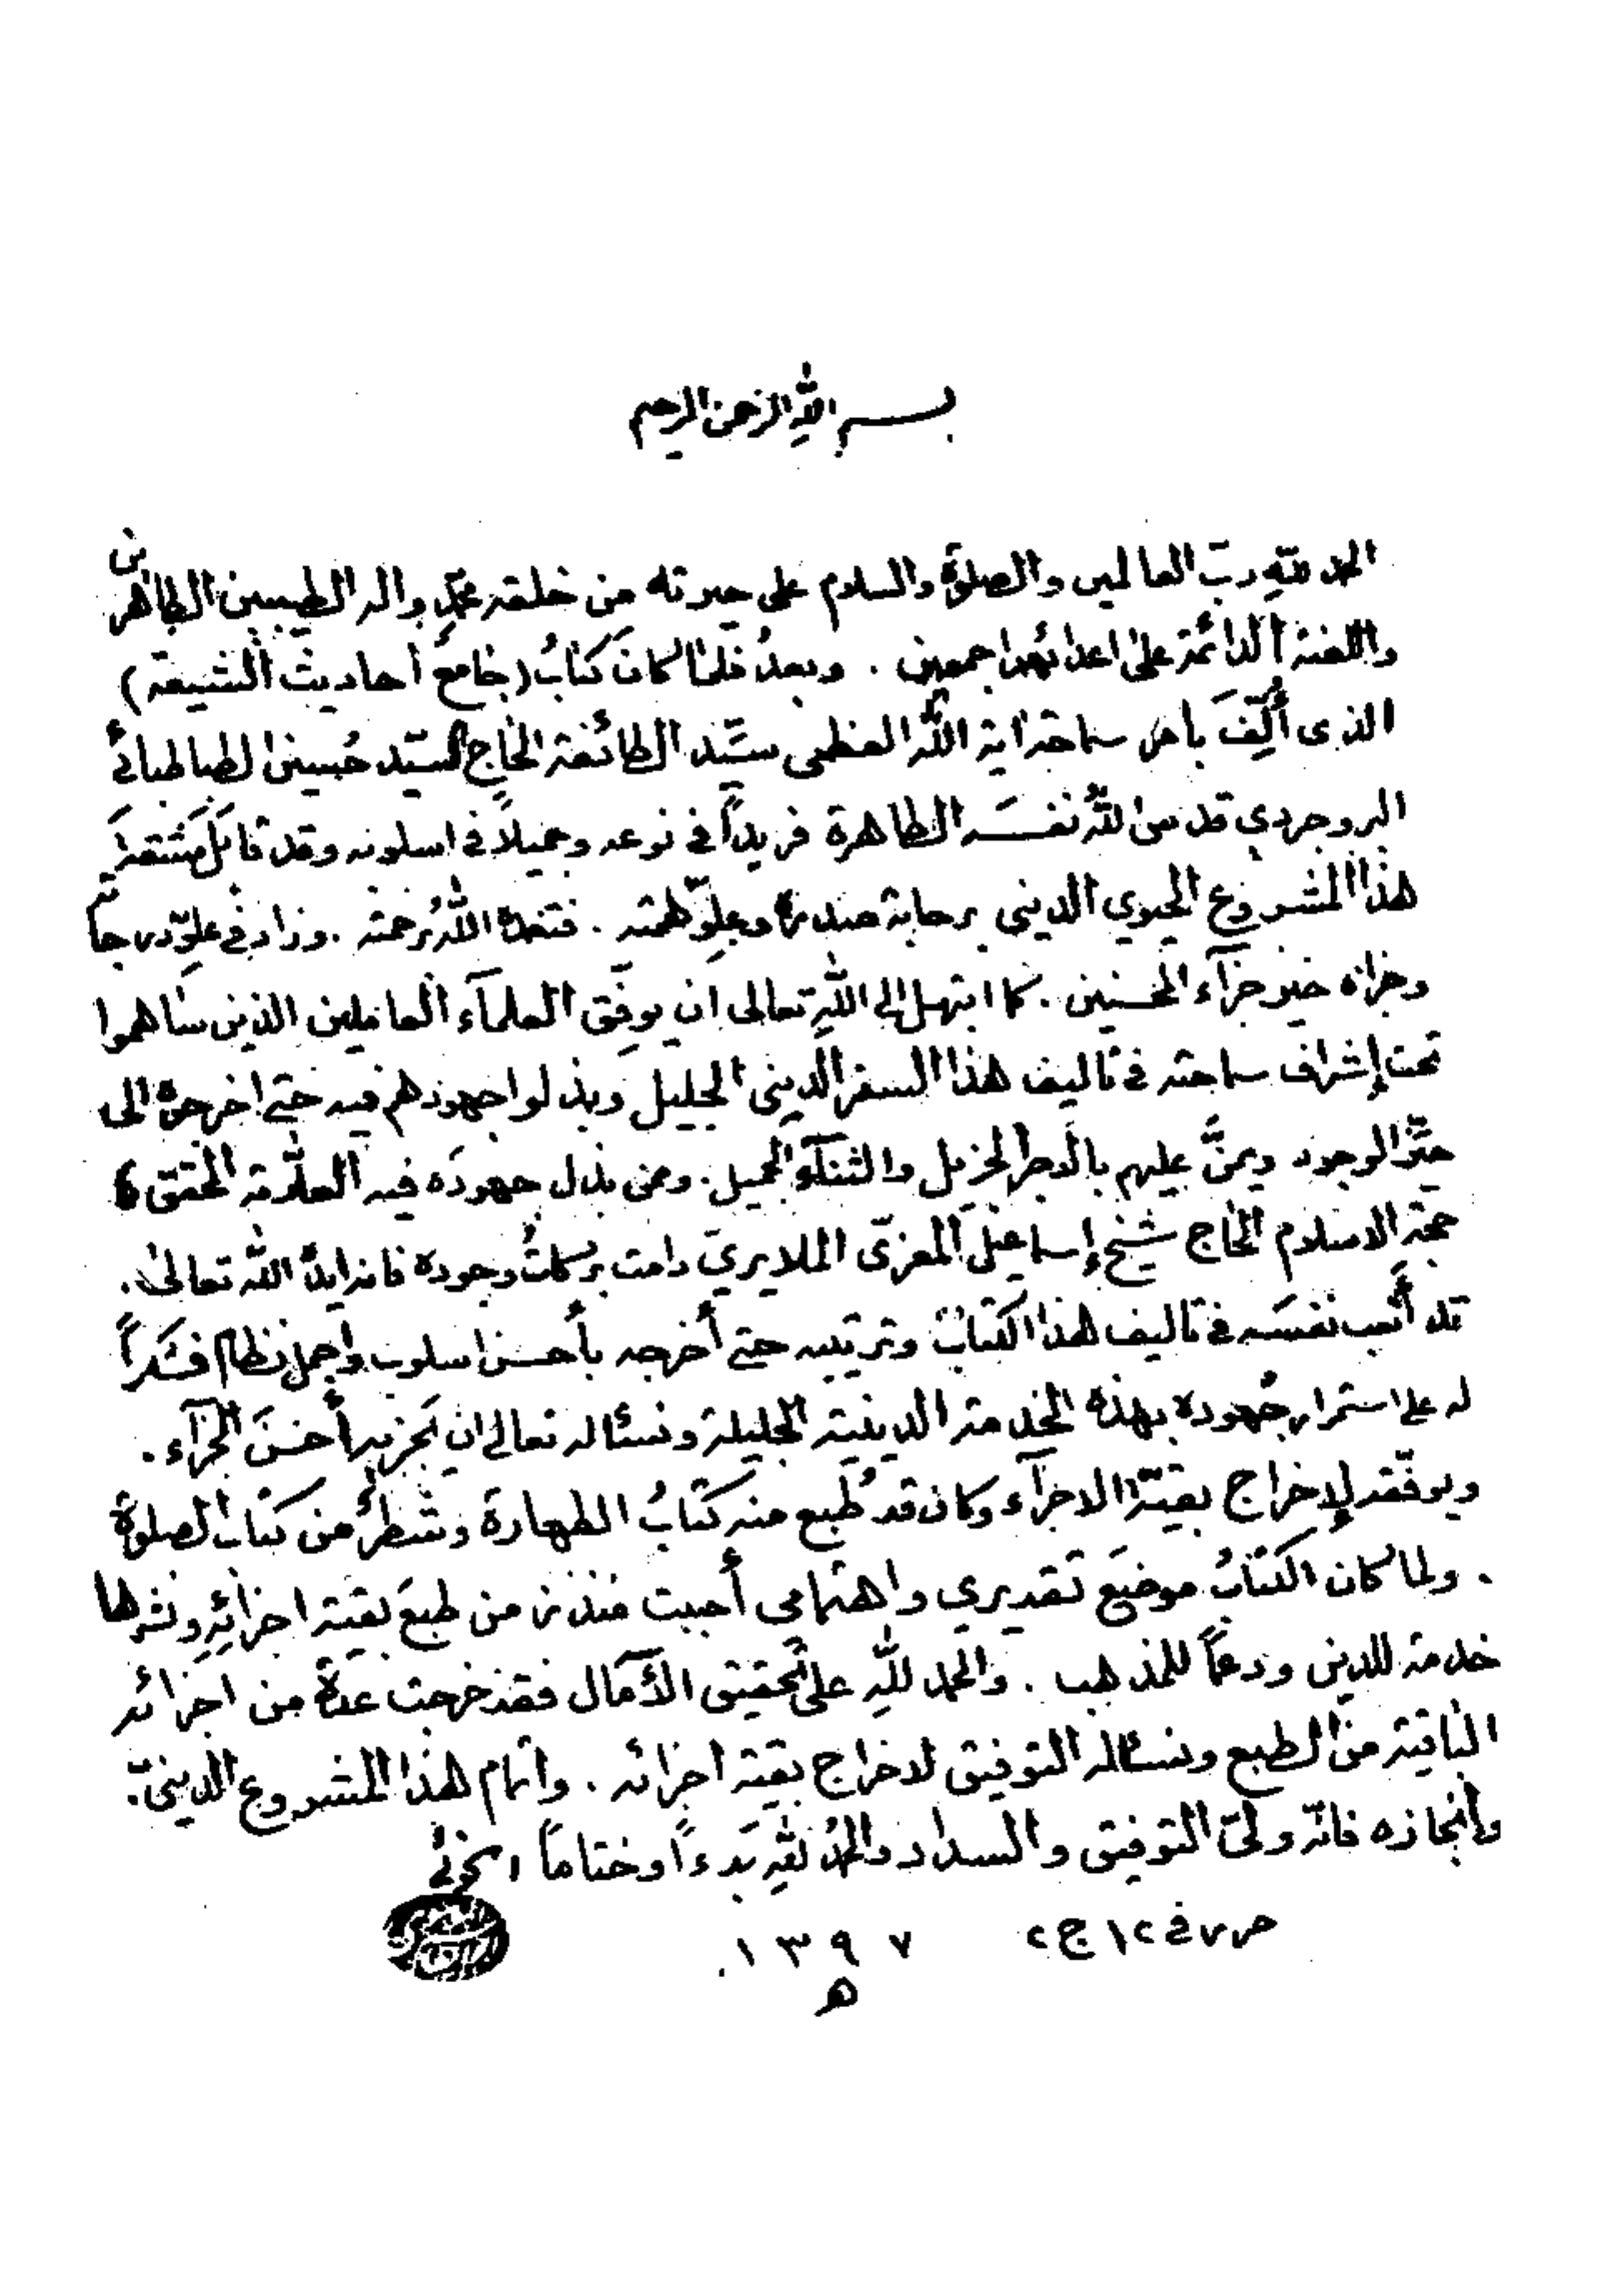 بسم الله الرحمن الرحيم
الحمد لله ربّ العالمين والصلوة والسلام على خيرته من خلقه محمّدٍ واله الطيبين الطاهرين
واللعنة الدائمة على اعدائهم اجمعين . وبعدُ فلما كان كتابُ (جامع أحاديث الشيعة)
الذى أُلِّفَ بامر سماحة اية الله العظمى سيّد الطائفة الحاج السيّد حُسين الطباطبائي
البروجردي قدس اللهُ نفسَه الطاهرة فريداً في نوعه وجميلاً في اسلوبه وقد قابَل مَشقّة
هذا المشروع الحيوي الديني برحابة صدره وعلوّ همته . فتغمده اللهُ برحمته . وزاد في علوّ درجاته
وجزاه خير جزآء المحسنين . كما ابتهل إلى اللهِ تعالى ان يوفّق العلمآء العاملين الذين ساهموا
تحت إشراف سماحته في تاليف هذا السفر الديني الجليل وبذلوا جهودهم فيه حتى اخرجوه الى
حيّز الوجود ويمنَّ عليهم بالاجر الجزيل والثنآء الجميل . وممن بذل جهودَه فيه العلّامة المحقق
حجة الاسلام الحاج شيخ إسماعيل المعزّى الملايري دامت بركاتُ وجوده فانه ايده الله تعالى .
قد أتعب نفسَه في تاليف هذا الكتاب وترتيبه حتى أخرجه بأحسن اسلوب واجمل نظام فشكراً
له على استمرار جُهوده بهذه الخدمة الدينية الجليلة ونسئاله تعالى ان يَجزيه أحسنَ الجزآء .
ويوفّقه لإخراج بقيّة الاجزآء وكان قد طُبع منه كتابُ الطهارة وشطرٌ من كتاب الصلوة
. ولما كان الكتابُ موضعَ تقديري واهتمامي أحببت من طبعَ بقية اجزائِه ونشرها
خدمة للدين ودعماً للمذهب . والحمد للهِ على تحقيق الآمال فقد خرجت عدةٌ من اجزائه
الباقية من الطبع ونسئاله التوفيق لاخراج بقية اجزائه . واتمام هذا المشروع الدينيّ .
وانجازه فانّه وليّ التوفيق والسداد والحمدُ للهِ بَدءاً وختاماً الخوئي
حرر في ١٢ ج ٢ ١٣٩٧
ه